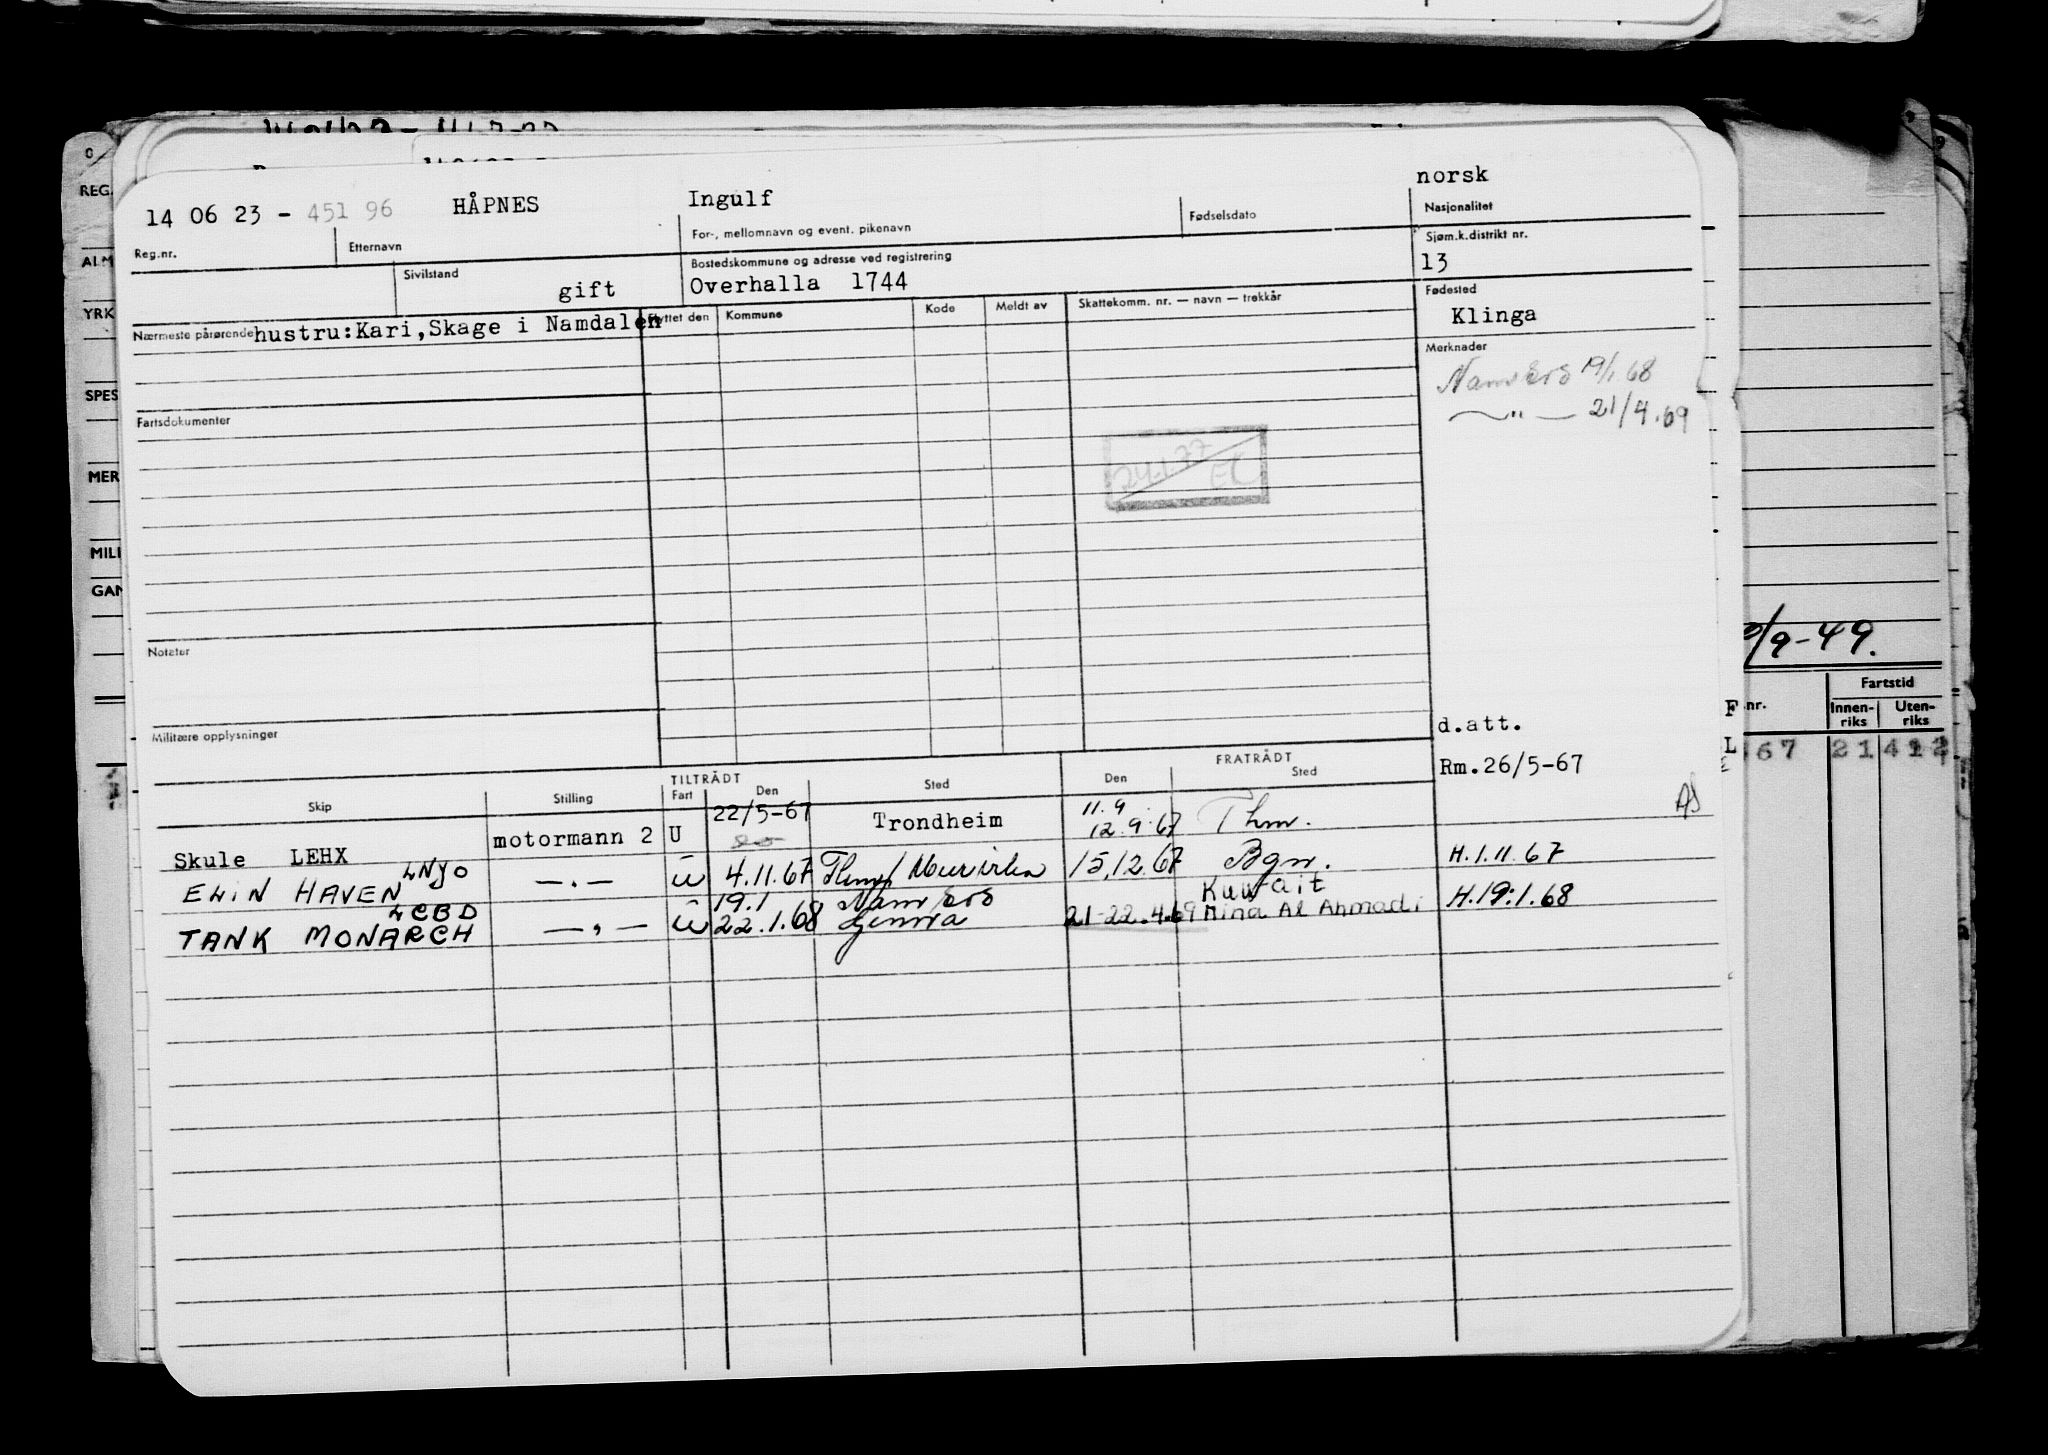 norsk
14 06 23 - 451 96 HÅPNES Ingulf
Reg.nr. Etternavn For-, mellomnavn og event. pikenavn Fødselsdato Nasjonalitet
Sivilstand Bostedskommune og adresse ved registrering Sjøm.k.distrikt nr.
gift Overhalla 1744 13
Nærmeste pårørende hustru:Kari,Skage i Namdalen Flyttet den Kommune Kode Meldt av Skattekomm. nr. — navn — trekkår Fødested
Klinga
Merknader
Namsos 19/1.68
— " — 21/4.69
Fartsdokumenter
24.1.77
EC
Notater
Militære opplysninger
d.att.
Rm.26/5-67
TILTRÅDT FRATRÅDT
Skip Stilling Fart Den Sted Den Sted
Skule LEHX motormann 2 U 22/5-67 Trondheim 11.9 12.9.67 Thm.
ELIN HAVEN LNJO — . — U 4.11.67 15.12.67 Bgn. H.1.11.67
TANK MONARCH LCBD — " — U 19.1 22.1.68 Namsos Genova 21-22.4.69 Kuwait Mina Al Ahmadi H.19.1.68
REG.
ALM
YRK
SPES
MER
MILI
GAN
/9-49.
nr. Fartstid
Innen-riks Uten-riks
67 21 412
F
L